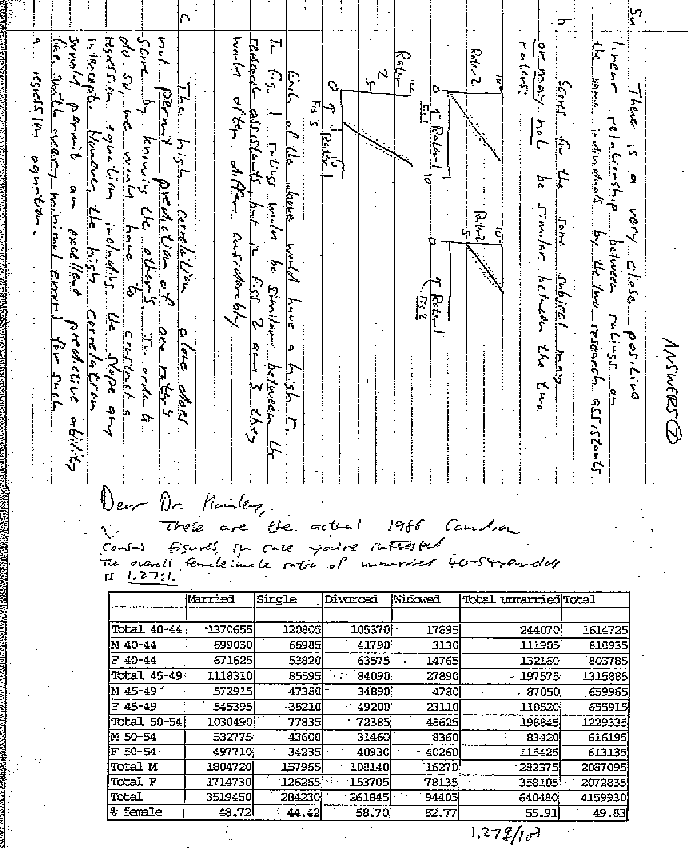 ANSWERS (2)
5a There is a very close positive
linear relationship between ratings on
the same individuals by the two research assistants
b. Scores for the same subject may
or may not be similar between the two
raters:
10
Rater 2
0 Rater 1 10
Fig 1
10
Rater 2
5
0 Rater 1
Fig 2
10
Rater
2 5
0 5 Rater 1 10
Fig 3
Each of the above would have a high r.
In fig. 1 ratings would be similar between the
research assistants, but in Figs 2 and 3 they
would often differ considerably
c The high correlation alone does
not permit prediction of one rater's
score by knowing the other's. In order to
do so, we would have to construct a
regression equation including the slope and
intercept. However the high correlation
would permit an excellent predictive ability
(i.e. with very minimal error) for such
a regression equation.
Dear Dr.
These are the actual 1986 Canadian
Census figures, in case you're interested
The overall female:male ratio of unmarried 40-54 year olds
is 1.27:1.
Married Single Divorced Widowed Total unmarried Total
Total 40-44 1370655 120805 105370 17895 244070 1614725
M 40-44 699030 66985 41790 3130 111905 810935
F 40-44 671625 53820 63575 14765 132160 803785
Total 45-49 1118310 85595 84090 27890 197575 1315885
M 45-49 572915 47380 34890 4780 87050 659965
F 45-49 545395 38210 49200 23110 110520 655915
Total 50-54 1030490 77835 72385 48625 198845 1229335
M 50-54 532775 43600 31460 8360 83420 616195
F 50-54 497710 34235 40930 40260 115425 613135
Total M 1804720 157965 108140 16270 282375 2087095
Total F 1714730 126265 153705 78135 358105 2072835
Total 3519450 284230 261845 94405 640480 4159930
% female 48.72 44.42 58.70 82.77 55.91 49.83